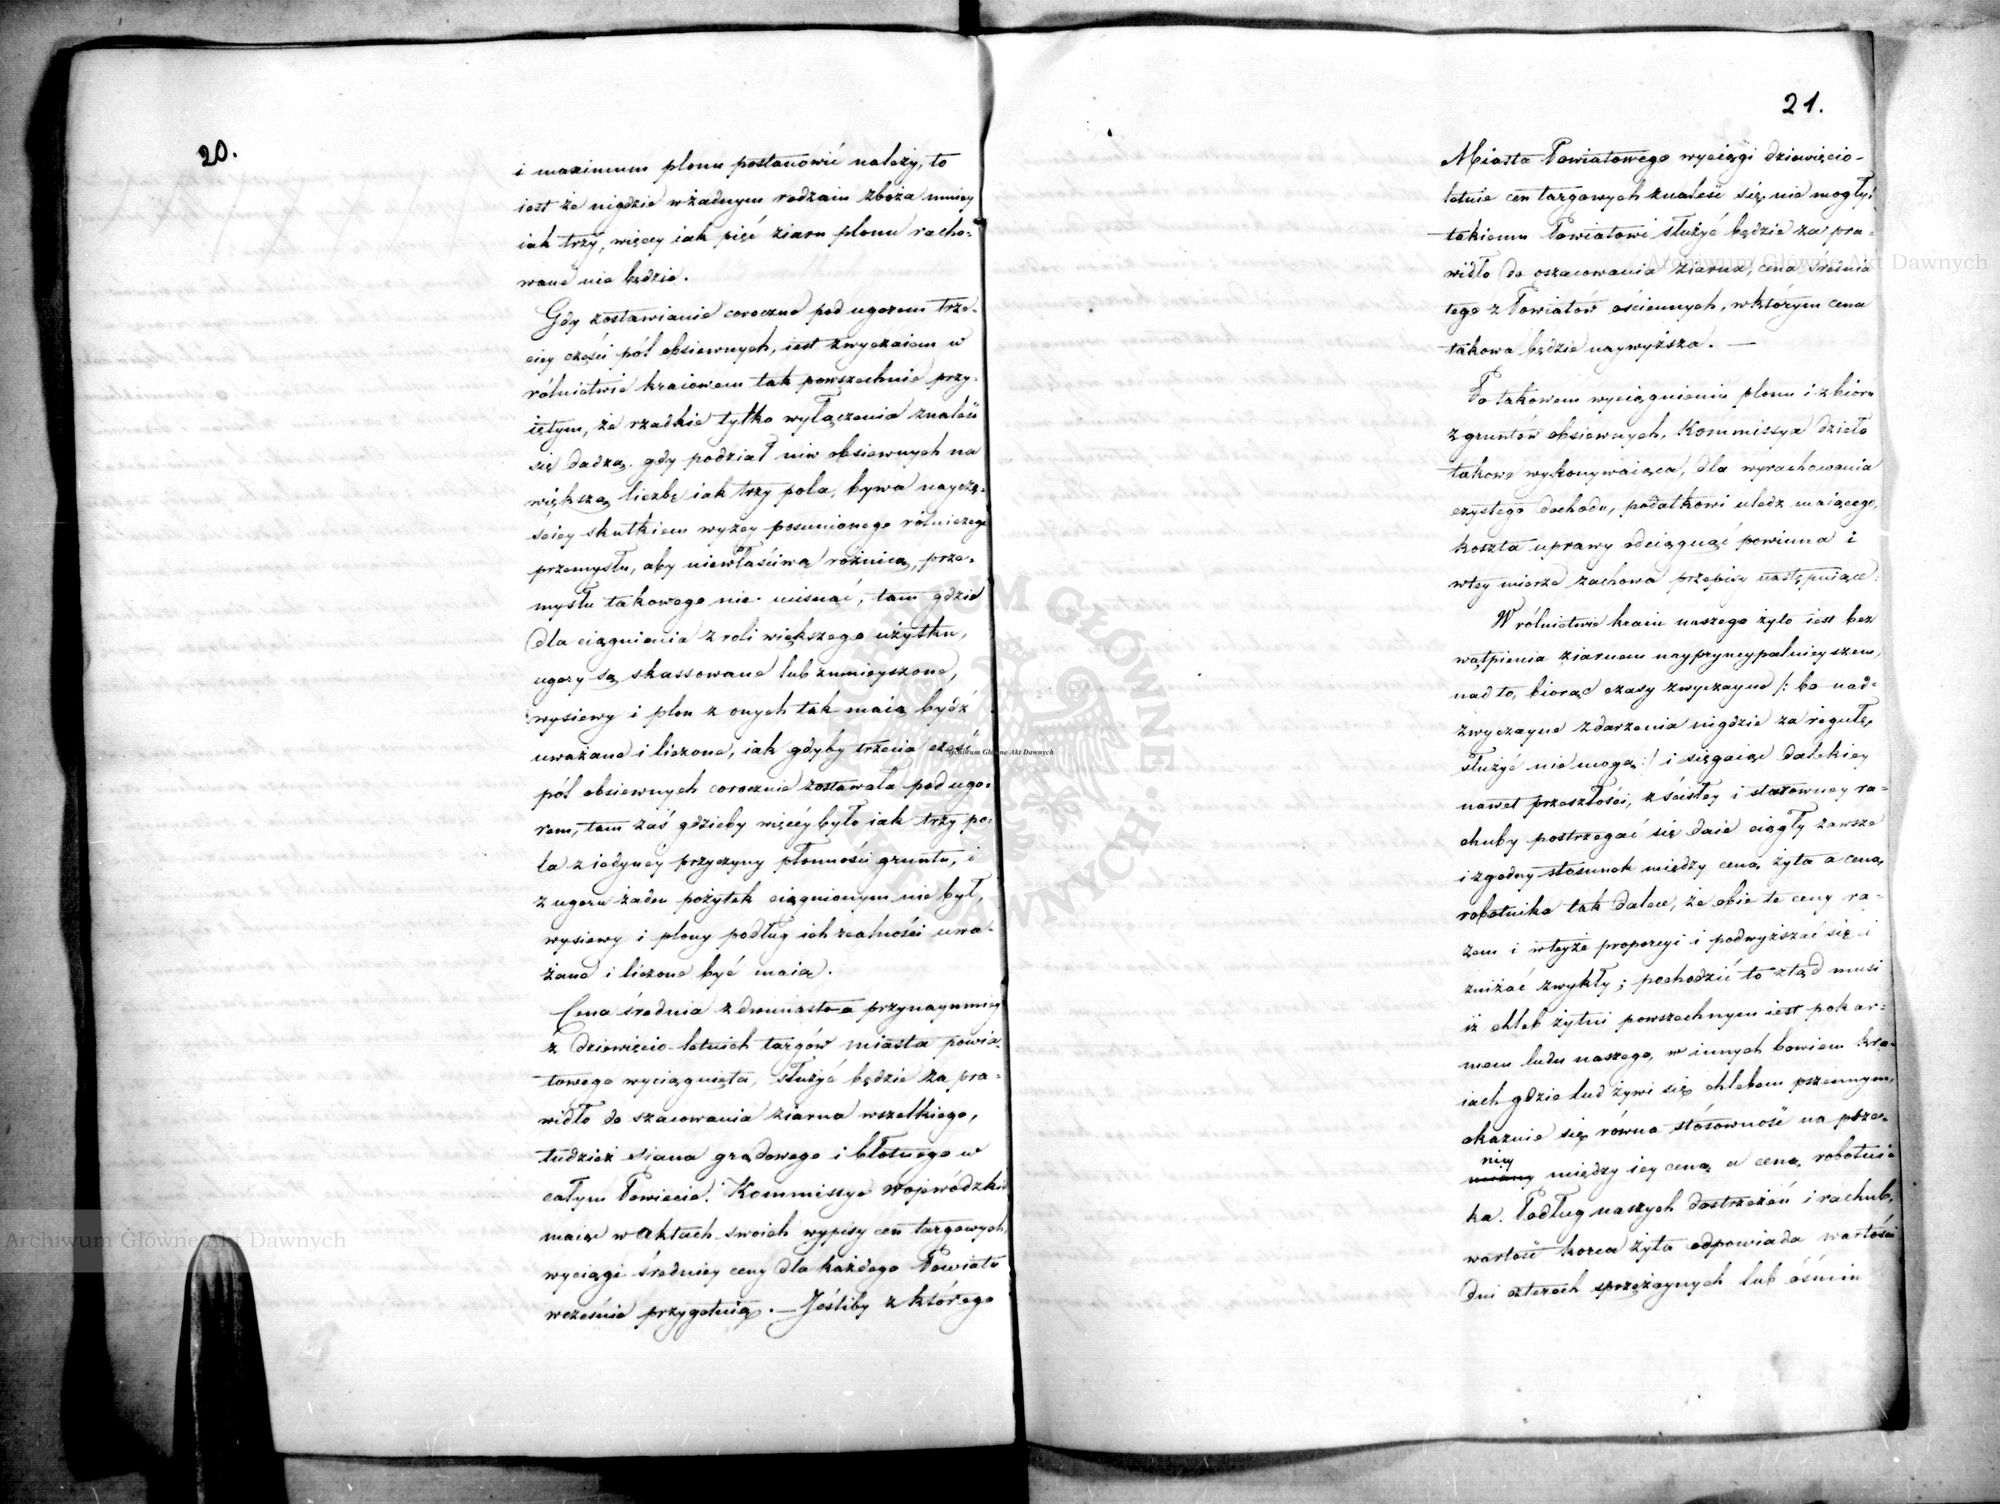 20.
i maximum plonu postanowić należy, to
iest że nigdzie w żadnym rodzaiu zboża mniey
iak trzy, więcey iak pięć ziarn plonu racho-
wane nie będzie.
Gdy zostawianie coroczne pod ugorem trze-
ciey części pól obsiewnych, iest zwyczaiem w
rólnictwie kraiowem tak powszechnie przy-
iętym, że rzadkie tylko wyłączenia znaleść
się dadzą. gdy podział niw obsiewnych na
większą liczbę iak trzy pola, bywa naycze-
ściey skutkiem wyżey posunionego rólniczego
przemysłu, aby niewłaściwą różnicą, prze-
mysłu takowego nie cisnąć, tam gdzie
dla ciągnienia z roli większego użytku,
ugory są skassowane lub zmnieyszone,
wysiewy i plon z onych tak maią bydź
uważane i liczone, iak gdyby trzecia część
pól obsiewnych corocznie zostawała pod ugo-
rem, tam zaś gdzieby więcéy było iak trzy po-
la z iedyney przyczyny płonności gruntu, i
z ugoru żaden pożytek ciągnionym nie był,
wysiewy i plony podług ich realności uwa-
żane i liczone być maią.
Cena średnia z dwunasto a przynaymniey
z dziewięcio-letnich targów miasta powia-
towego wyciągnięta, służyć będzie za pra-
widło do szacowania ziarna wszelkiego,
tudzież siana grądowego i błotnego w
całym Powiecie. Kommissye Wojewódzkie
maiąc w Aktach swoich wypisy cen targowych,
wyciągi średniey ceny dla każdego Powiatu
wcześnie przygotuią. — Jeśliby z którego
21.
Miasta Powiatowego wyciągi dziewięcio-
letnie cen targowych znaleść się nie mogły,
takiemu Powiatowi służyć będzie za pra-
widło do oszacowania ziarna, cena średnia
tego z Powiatów ościennych, w którym cena
takowa będzie naywyższa. —
Po takowem wyciągnieniu plonu i zbioru
z gruntów obsiewnych, Kommissya dzieło
takowe wykonywaiąca, dla wyrachowania
czystego dochodu, podatkowi uledz maiącego,
koszta uprawy odciągnąć powinna i
w tey mierze zachowa przepisy następuiące:
W rólnictwie kraiu naszego żyto iest bez
wątpienia ziarnem naypryncypalnieyszem,
nad to, biorąc czasy zwyczayne /: bo nad-
zwyczayne zdarzenia nigdzie za regułę
służyć nie mogą :/ i sięgaiąc dalekiey
nawet przeszłości, z ścisłey i starowney ra-
chuby postrzegać się daie ciągły zawsze
i zgodny stosunek między ceną żyta a ceną
robotnika tak dalece, że obie te ceny ra-
zem i w teyże proporcyi i podwyższać się i
zniżać zwykły; pochodzić to ztąd musi
iż chleb żytni powszechnym iest pokar-
mem ludu naszego, w innych bowiem kra-
iach gdzie lud żywi się chlebem pszennym,
okazuie się równa stósowność na psze-
nicy między iey ceną a ceną robotni-
ka. Podług naszych dostrzeżeń i rachub,
wartość korca żyta odpowiada wartości
dni czterech sprzężaynych lub ośmiu
Archiwum Główne Akt Dawnych
Archiwum Główne Akt Dawnych
Archiwum Główne Akt Dawnych
ARCHIWUM GŁÓWNE AKT DAWNYCH